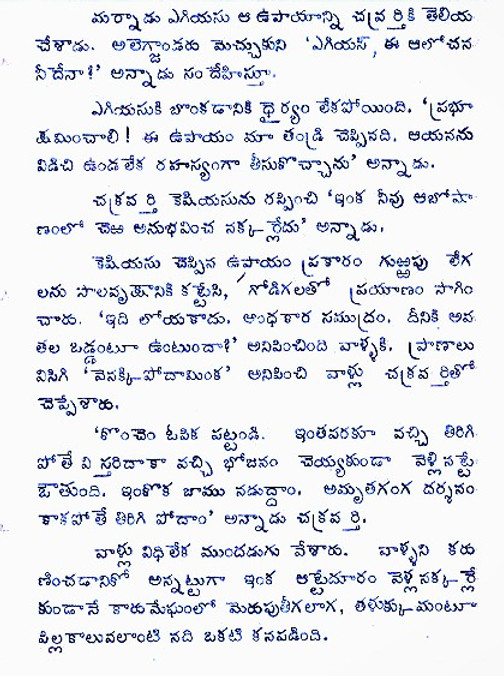 మర్నాడు ఎగియసు ఆ ఉపాయాన్ని చక్రవర్తికి తెలియ
చేశాడు. అలెగ్జాండరు మెచ్చుకుని 'ఎగియస్, ఈ ఆలోచన
నీదేనా?' అన్నాడు సందేహిస్తూ.
ఎగియసుకి బొంకడానికి ధైర్యం లేకపోయింది. 'ప్రభూ
క్షమించాలి! ఈ ఉపాయం మా తండ్రి చెప్పినది. ఆయనను
విడిచి ఉండలేక రహస్యంగా తీసుకొచ్చాను' అన్నాడు.
చక్రవర్తి కెషియసును రప్పించి 'ఇంక నీవు ఆబోసా
ణంలో చెఱ అనుభవించ నక్కర్లేదు' అన్నాడు.
కెషియసు చెప్పిన ఉపాయం ప్రకారం గుఱ్ఱపు లేగ
లను సాలవృక్షానికి కట్టేసి, గోడిగలతో ప్రయాణం సాగిం
చారు. 'ఇది లోయకాదు. అంధకార సముద్రం. దీనికి అవ
తల ఒడ్డంటూ ఉంటుందా?' అనిపించింది వాళ్ళకి. ప్రాణాలు
విసిగి 'వెనక్కి పోదామింక' అనిపించి వాళ్లు చక్రవర్తితో
చెప్పేశారు.
'కొంచెం ఓపిక పట్టండి. ఇంతవరకూ వచ్చి తిరిగి
పోతే విస్తరిదాకా వచ్చి భోజనం చెయ్యకుండా వెళ్లినట్టే
ఔతుంది. ఇంకొక జాము నడుద్దాం. అమృతగంగ దర్శనం
కాకపోతే తిరిగి పోదాం' అన్నాడు చక్రవర్తి.
వాళ్లు విధిలేక ముందడుగు వేశారు. వాళ్ళని కరు
ణించడానికో అన్నట్టుగా ఇంక ఆట్టేదూరం వెళ్లనక్కర్లే
కుండానే కారుమేఘంలో మెరుపుతీగలాగ, తళుక్కుమంటూ
పిల్లకాలువలాంటి నది ఒకటి కనపడింది.